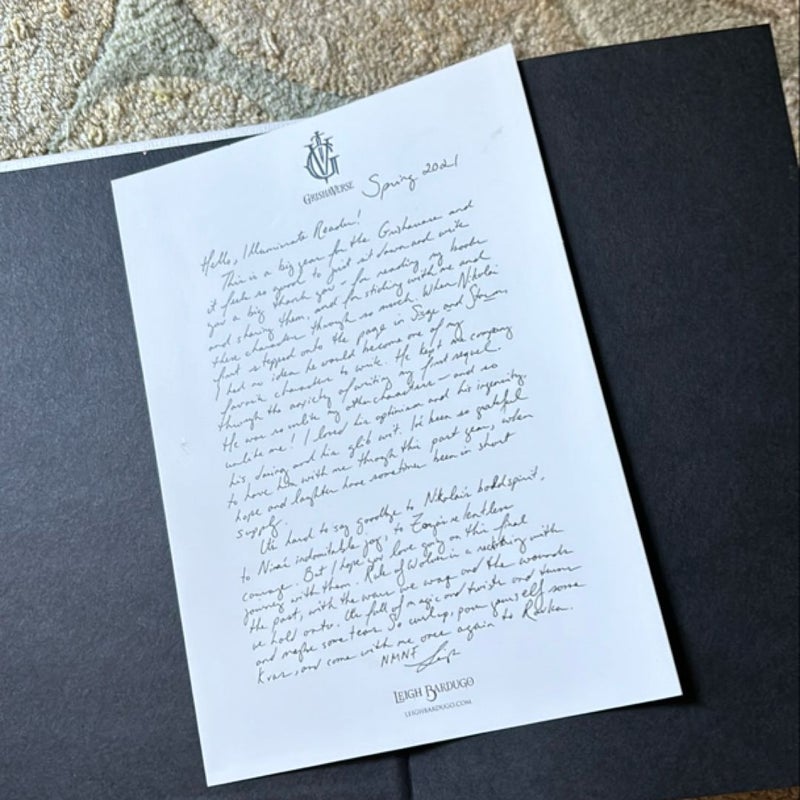 GV
GRISHAVERSE
Spring 2021
Hello, Illuminate Reader!
This is a big year for the Grishaverse and
it feels so good to just sit down and write
you a big thank you - for reading my books
and sharing them, and for sticking with me and
these characters through so much. When Nikolai
first stepped onto the page in Siege and Storm,
I had no idea he would become one of my
favorite characters to write. He kept me company
through the anxiety of writing my first sequel.
He was so unlike my other characters - and so
unlike me! I loved his optimism and his ingenuity,
his daring and his glib wit. I've been so grateful
to have him with me through this past year, when
hope and laughter have sometimes been in short
supply.
It's hard to say goodbye to Nikolai's bold spirit,
to Nina's indomitable joy, to Zoya's relentless
courage. But I hope you love going on this final
journey with them. Rule of Wolves is a reckoning with
the past, with the wars we wage and the wounds
we hold onto. It's full of magic and twists and turns
and maybe some tears. So curl up, pour yourself some
kvas, and come with me once again to Ravka.
NMNF Leigh
LEIGH BARDUGO
LEIGHBARDUGO.COM